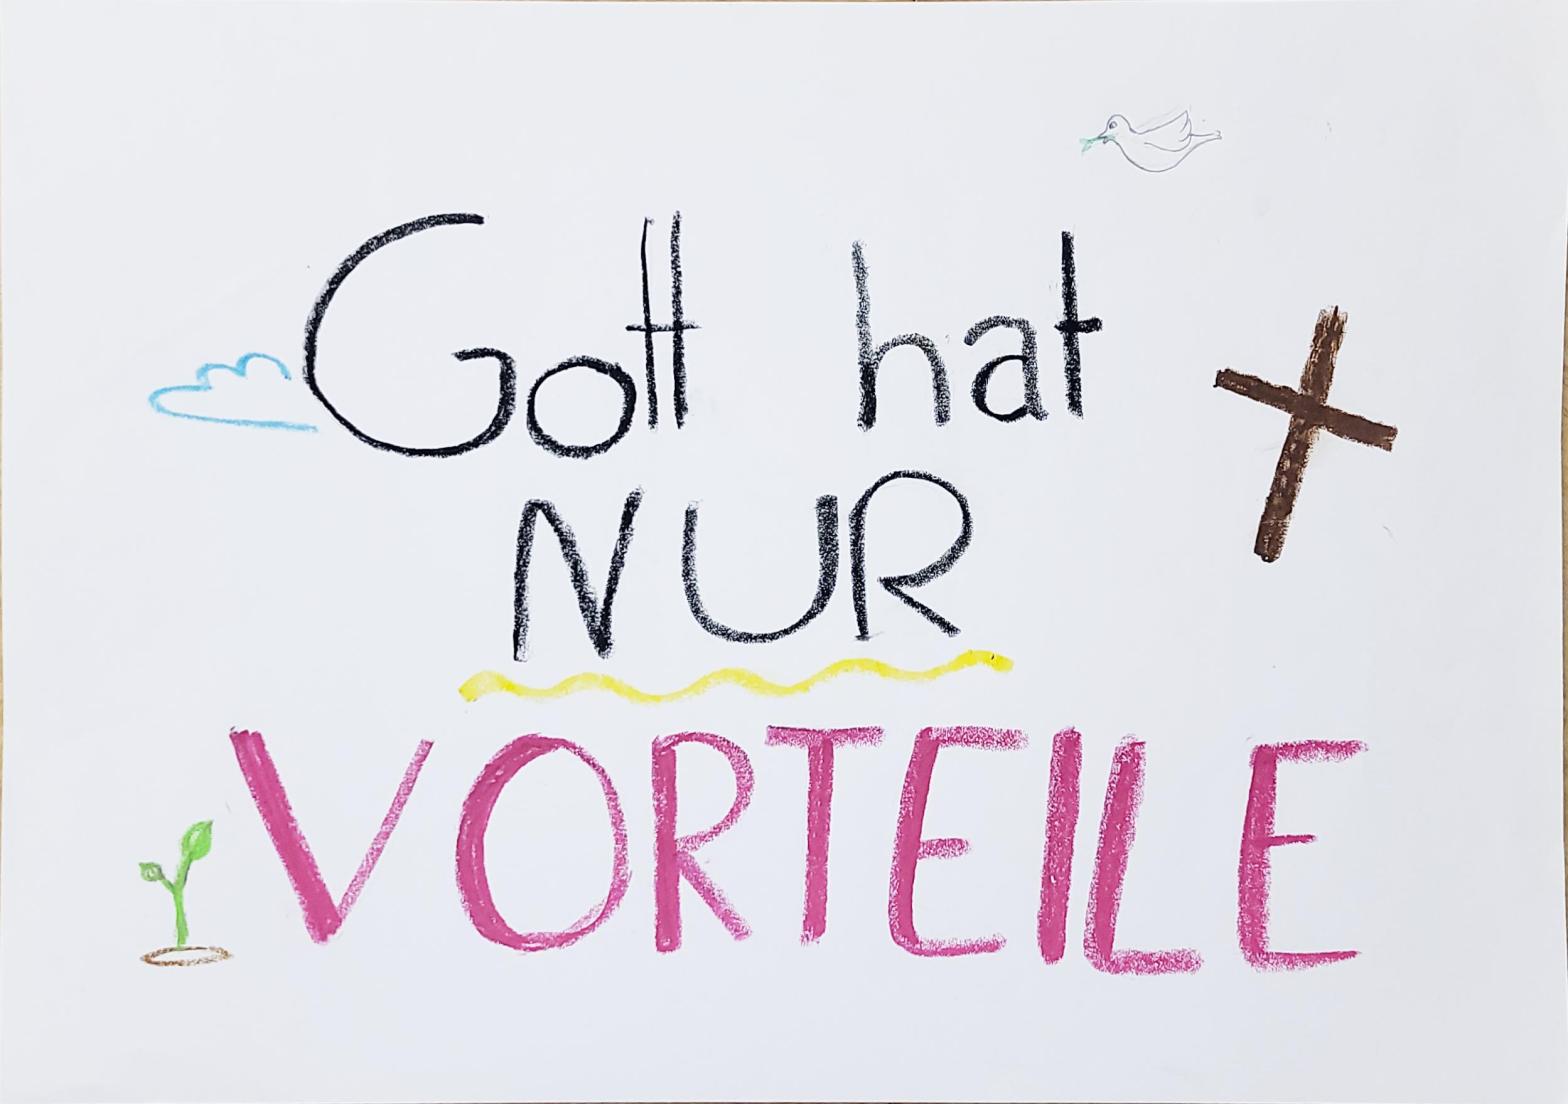 Gott hat
NUR
VORTEILE